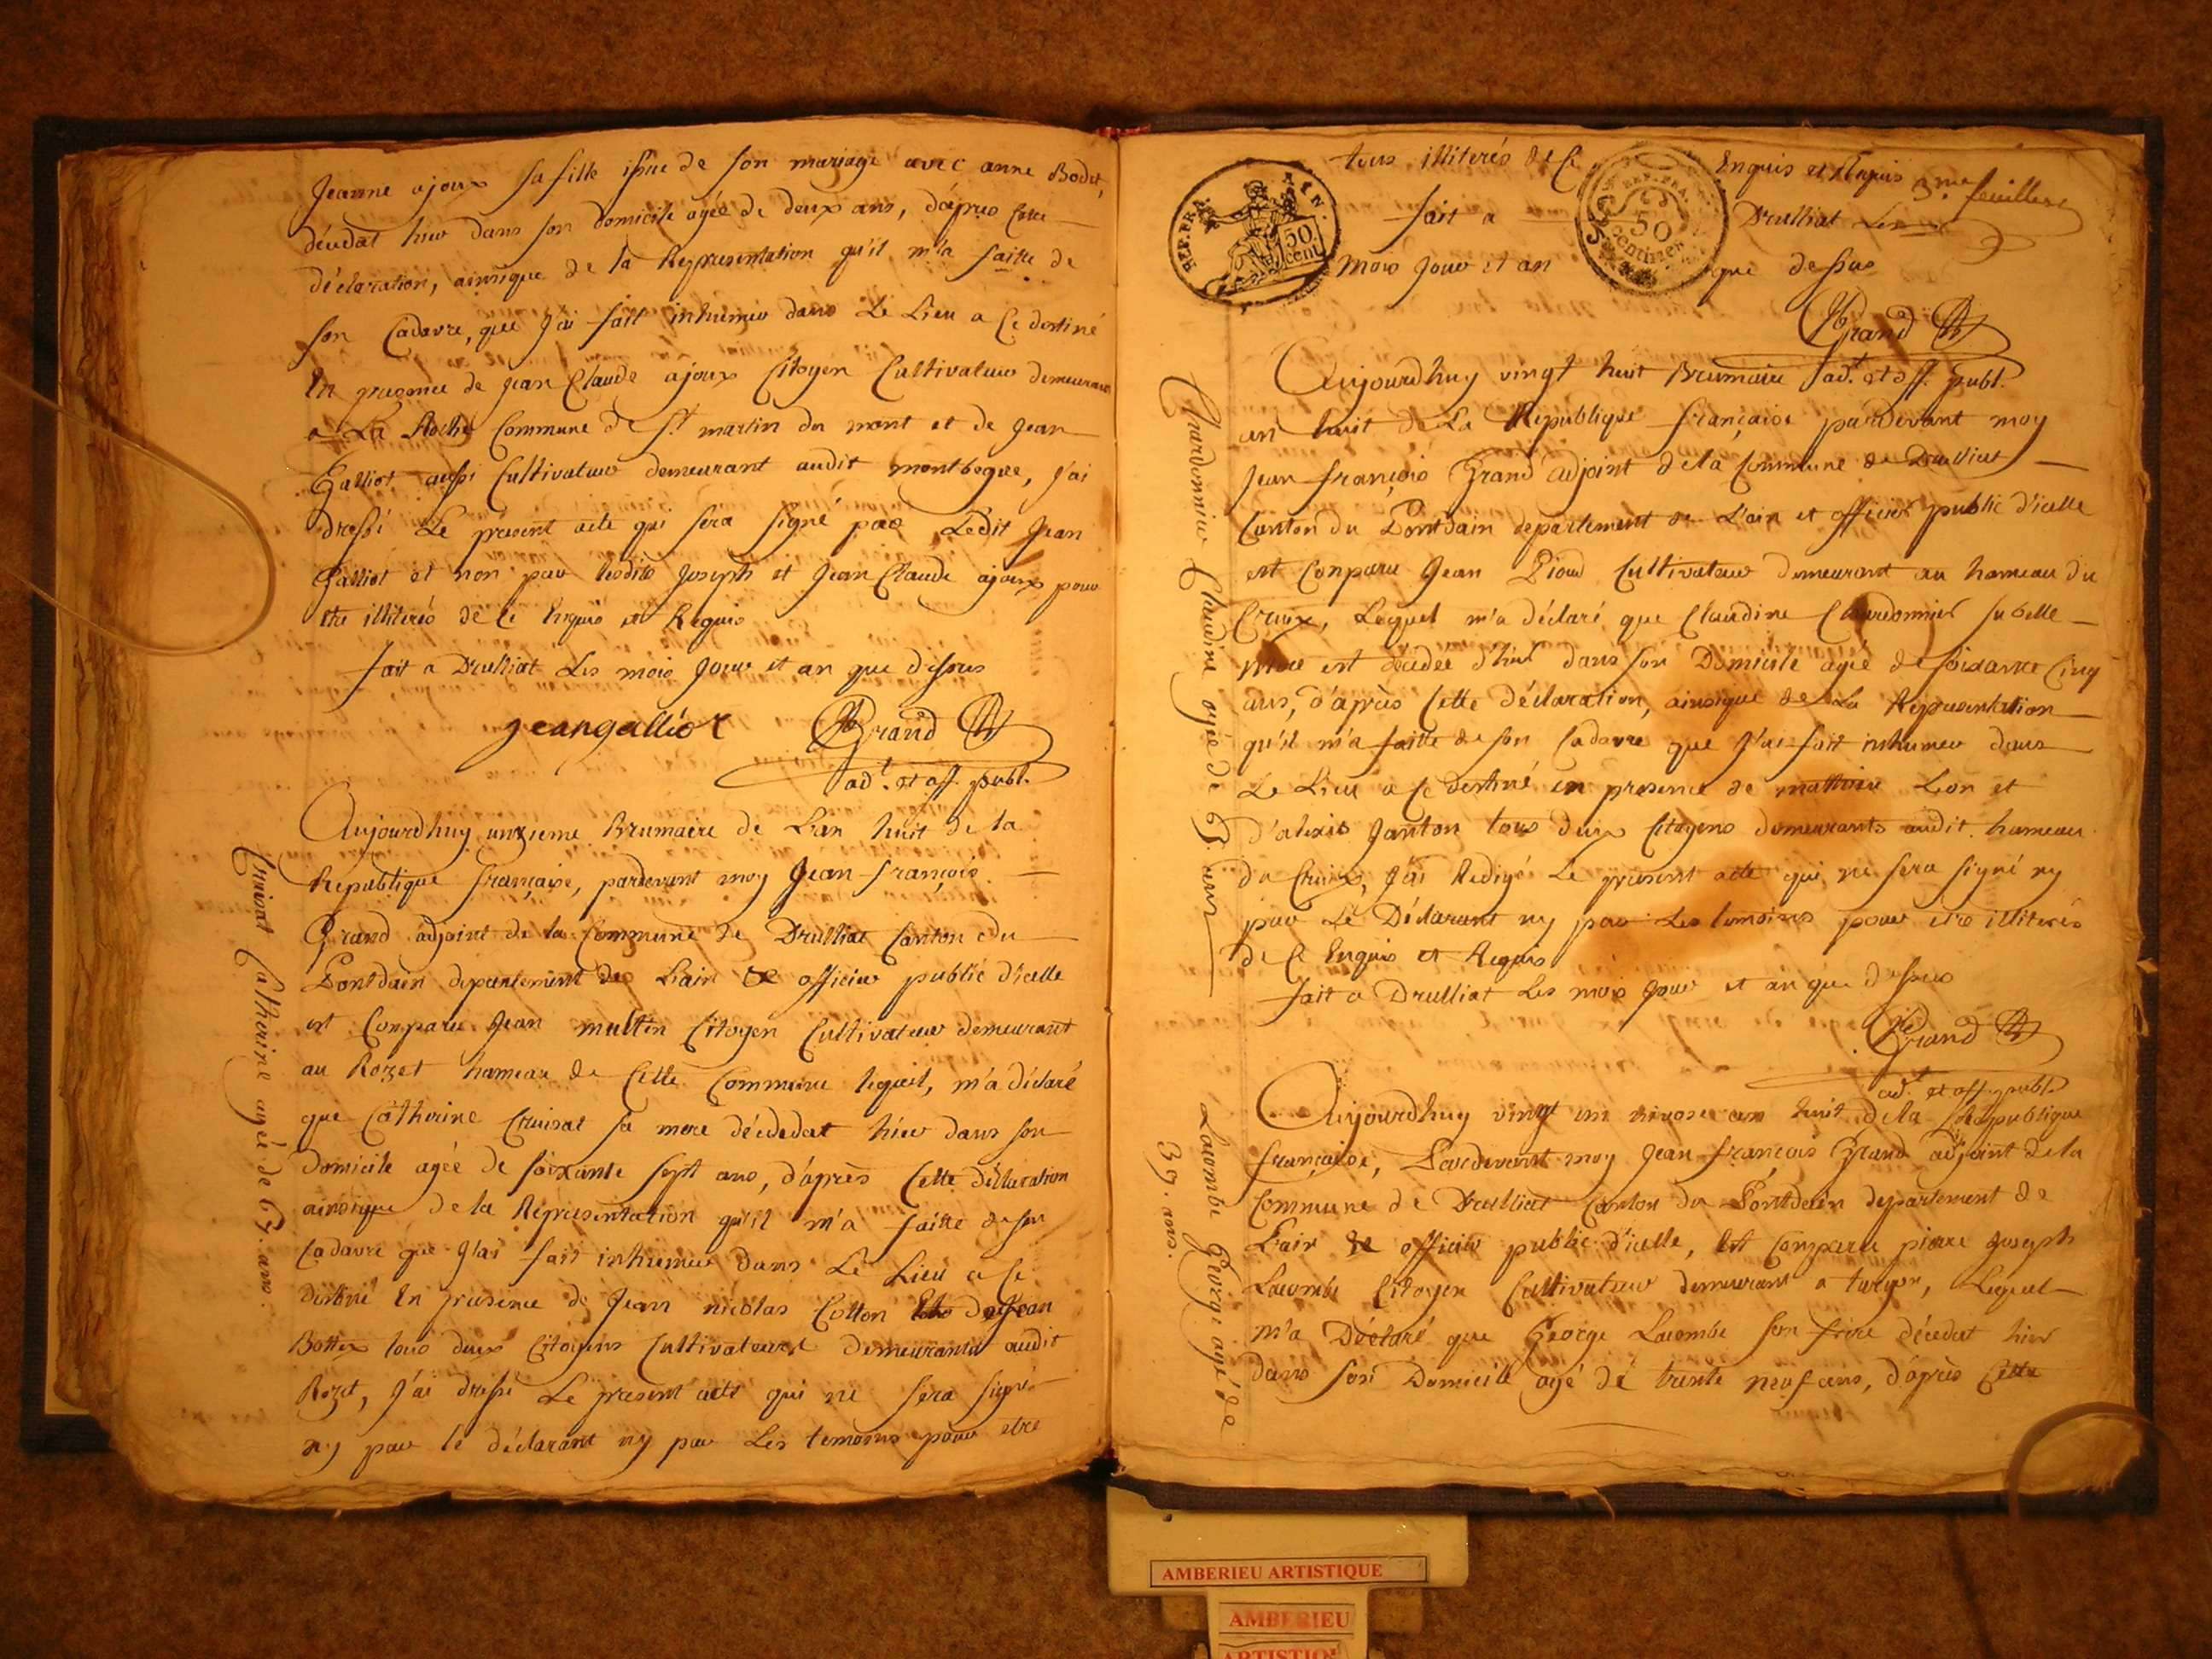 Jeanne ajoux sa fille issue de son mariage avec anne Bodet,
décédat hier dans son domicile agée de deux ans, d'après cette
déclaration, ainsique de la Représentation qu'il m'a faitte de
son Cadavre, que J'ai fait inhumer dans Le Lieu a Ce destiné
En presence de Jean Claude ajoux Citoyen Cultivateur demeurant
a La Roche Commune de St martin du mont et de Jean
Galliot aussi Cultivateur demeurant audit montbegue, J'ai
dressé Le present acte qui sera signé par Ledit Jean
Galliot et non par lesdits Joseph et Jean Claude ajoux pour
etre illiterés de Ce Enquis et Requis
fait a Drulliat Les mois Jour et an que dessus
jeangalliot Grand
adt. et off. publ.
Aujourdhuy unzieme Brumaire de L'an huit de la
Republique française, pardevant moy Jean-françois
Grand adjoint de la Commune de Drulliat Canton du
Pontdain departement de L'ain et officier public d'icelle
est Comparu Jean multin Citoyen Cultivateur demeurant
au Rozet hameau de Cette Commune lequel, m'a déclaré
que Catherine Cruisat sa mere décédat hier dans son
Domicile agée de soixante sept ans, d'après Cette déclaration
ainsique de la Représentation qu'il m'a faitte de son
Cadavre que J'ai fait inhumer dans Le Lieu a Ce
destiné En presence de Jean nicolas Cotton de Jean
Bottex tous deux Citoyens Cultivateurs demeurants audit
Rozet, J'ai dressé Le present acte qui ne sera signé
ny par le déclarant ny par Les temoins pour etre
Cruisat Catherine agée de 67. ans.
tous illiterés de Ce Enquis et Requis 3.me feuillet
fait a Drulliat Les
mois Jour et an que dessus
REP. FRA. 50 cent
REP. FRA. 50 centimes
Grand
adt. et off. publ.
Aujourdhuy vingt huit Brumaire
an huit de La Republique française pardevant moy
Jean-françois Grand adjoint de la Commune de Drulliat
Canton du Pontdain departement de L'ain et officier public d'icelle
est Comparu Jean Pioud Cultivateur demeurant au hameau du
Cruix, Lequel m'a déclaré que Claudine Chardonnier sa belle
mere est décédée d'hier dans son Domicile agée de soixante Cinq
ans, d'après Cette déclaration, ainsique de La Représentation
qu'il m'a faitte de son Cadavre que J'ai fait inhumer dans
Le Lieu a Ce destiné en presence de Leon et
d'alexis Janton tous deux Citoyens demeurants audit hameau
du Cruix, J'ai Redigé Le present acte qui ne sera signé ny
par Le Déclarant ny par Les temoins pour etre illiterés
de Ce Enquis et Requis
fait a Drulliat Les mois Jour et an que dessus
Grand
adt. et off. publ.
Chardonnier Claudine agée de 65 ans
Aujourdhuy vingt un nivose an huit de la Republique
française, Pardevant moy Jean-françois Grand adjoint de la
Commune de Drulliat Canton du Pontdain departement de
L'ain et officier public d'icelle, est Comparu pierre Joseph
Lacombe Citoyen Cultivateur demeurant a turgon, Lequel
m'a Déclaré que George Lacombe son frere décédat hier
dans son Domicile agé de trente neuf ans, d'après Cette
Lacombe George agé de
39. ans.
AMBERIEU ARTISTIQUE
AMBERIEU
ARTISTIQUE